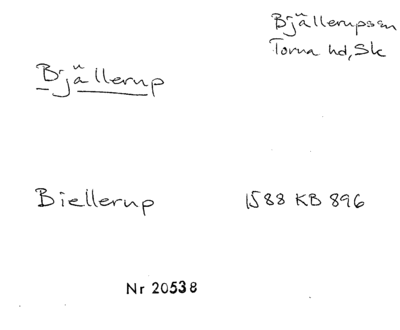 Bjällerupssn
Torna hd, Sk
Bjällerup
Biellerup 1588 KB 896
Nr 20538